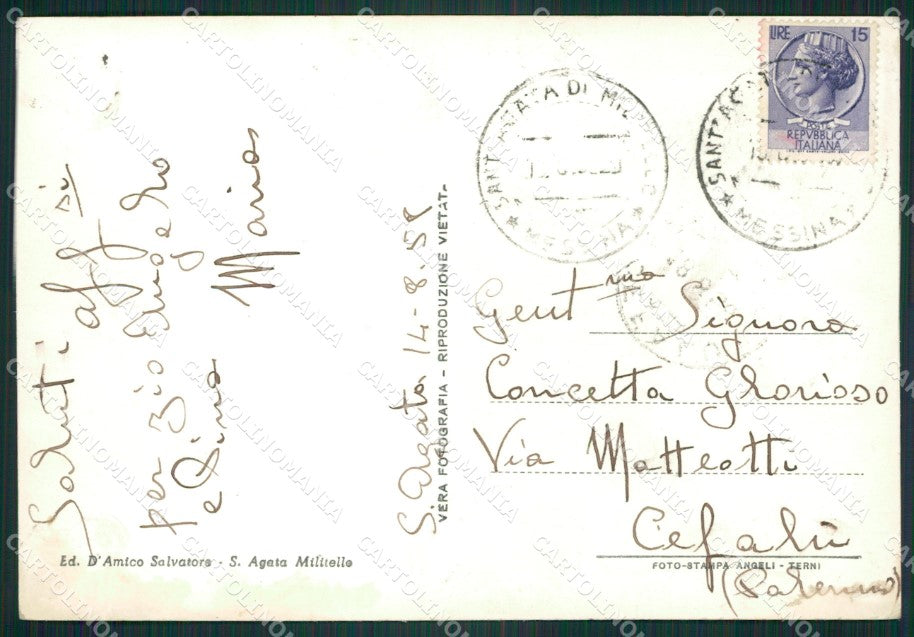 LIRE 15
POSTE
REPVBBLICA
ITALIANA
SANT'AGATA DI MILITELLO
★ MESSINA ★
SANT'AGATA
★ MESSINA
Saluti aff.
per Zio
e
Maria
S. Agata 14-8-58
VERA FOTOGRAFIA - RIPRODUZIONE VIETAT
Gent.ma Signora
Concetta Glorioso
Via Matteotti
Cefalù
(Palermo)
Ed. D'Amico Salvatore - S. Agata Militello
FOTO-STAMPA ANGELI - TERNI
CARTOLINOMANIA